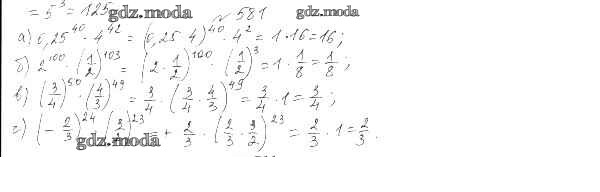 = 5³ = 125 gdz.moda № 581 gdz.moda
а) 0,25⁴⁰ · 4⁴² = (0,25 · 4)⁴⁰ · 4² = 1 · 16 = 16;
б) 2¹⁰⁰ · (1/2)¹⁰³ = (2 · 1/2)¹⁰⁰ · (1/2)³ = 1 · 1/8 = 1/8;
в) (3/4)⁵⁰ · (4/3)⁴⁹ = 3/4 · (3/4 · 4/3)⁴⁹ = 3/4 · 1 = 3/4;
г) (− 2/3)²⁴ · (3/2)²³ = + 2/3 · (2/3 · 3/2)²³ = 2/3 · 1 = 2/3.
gdz.moda